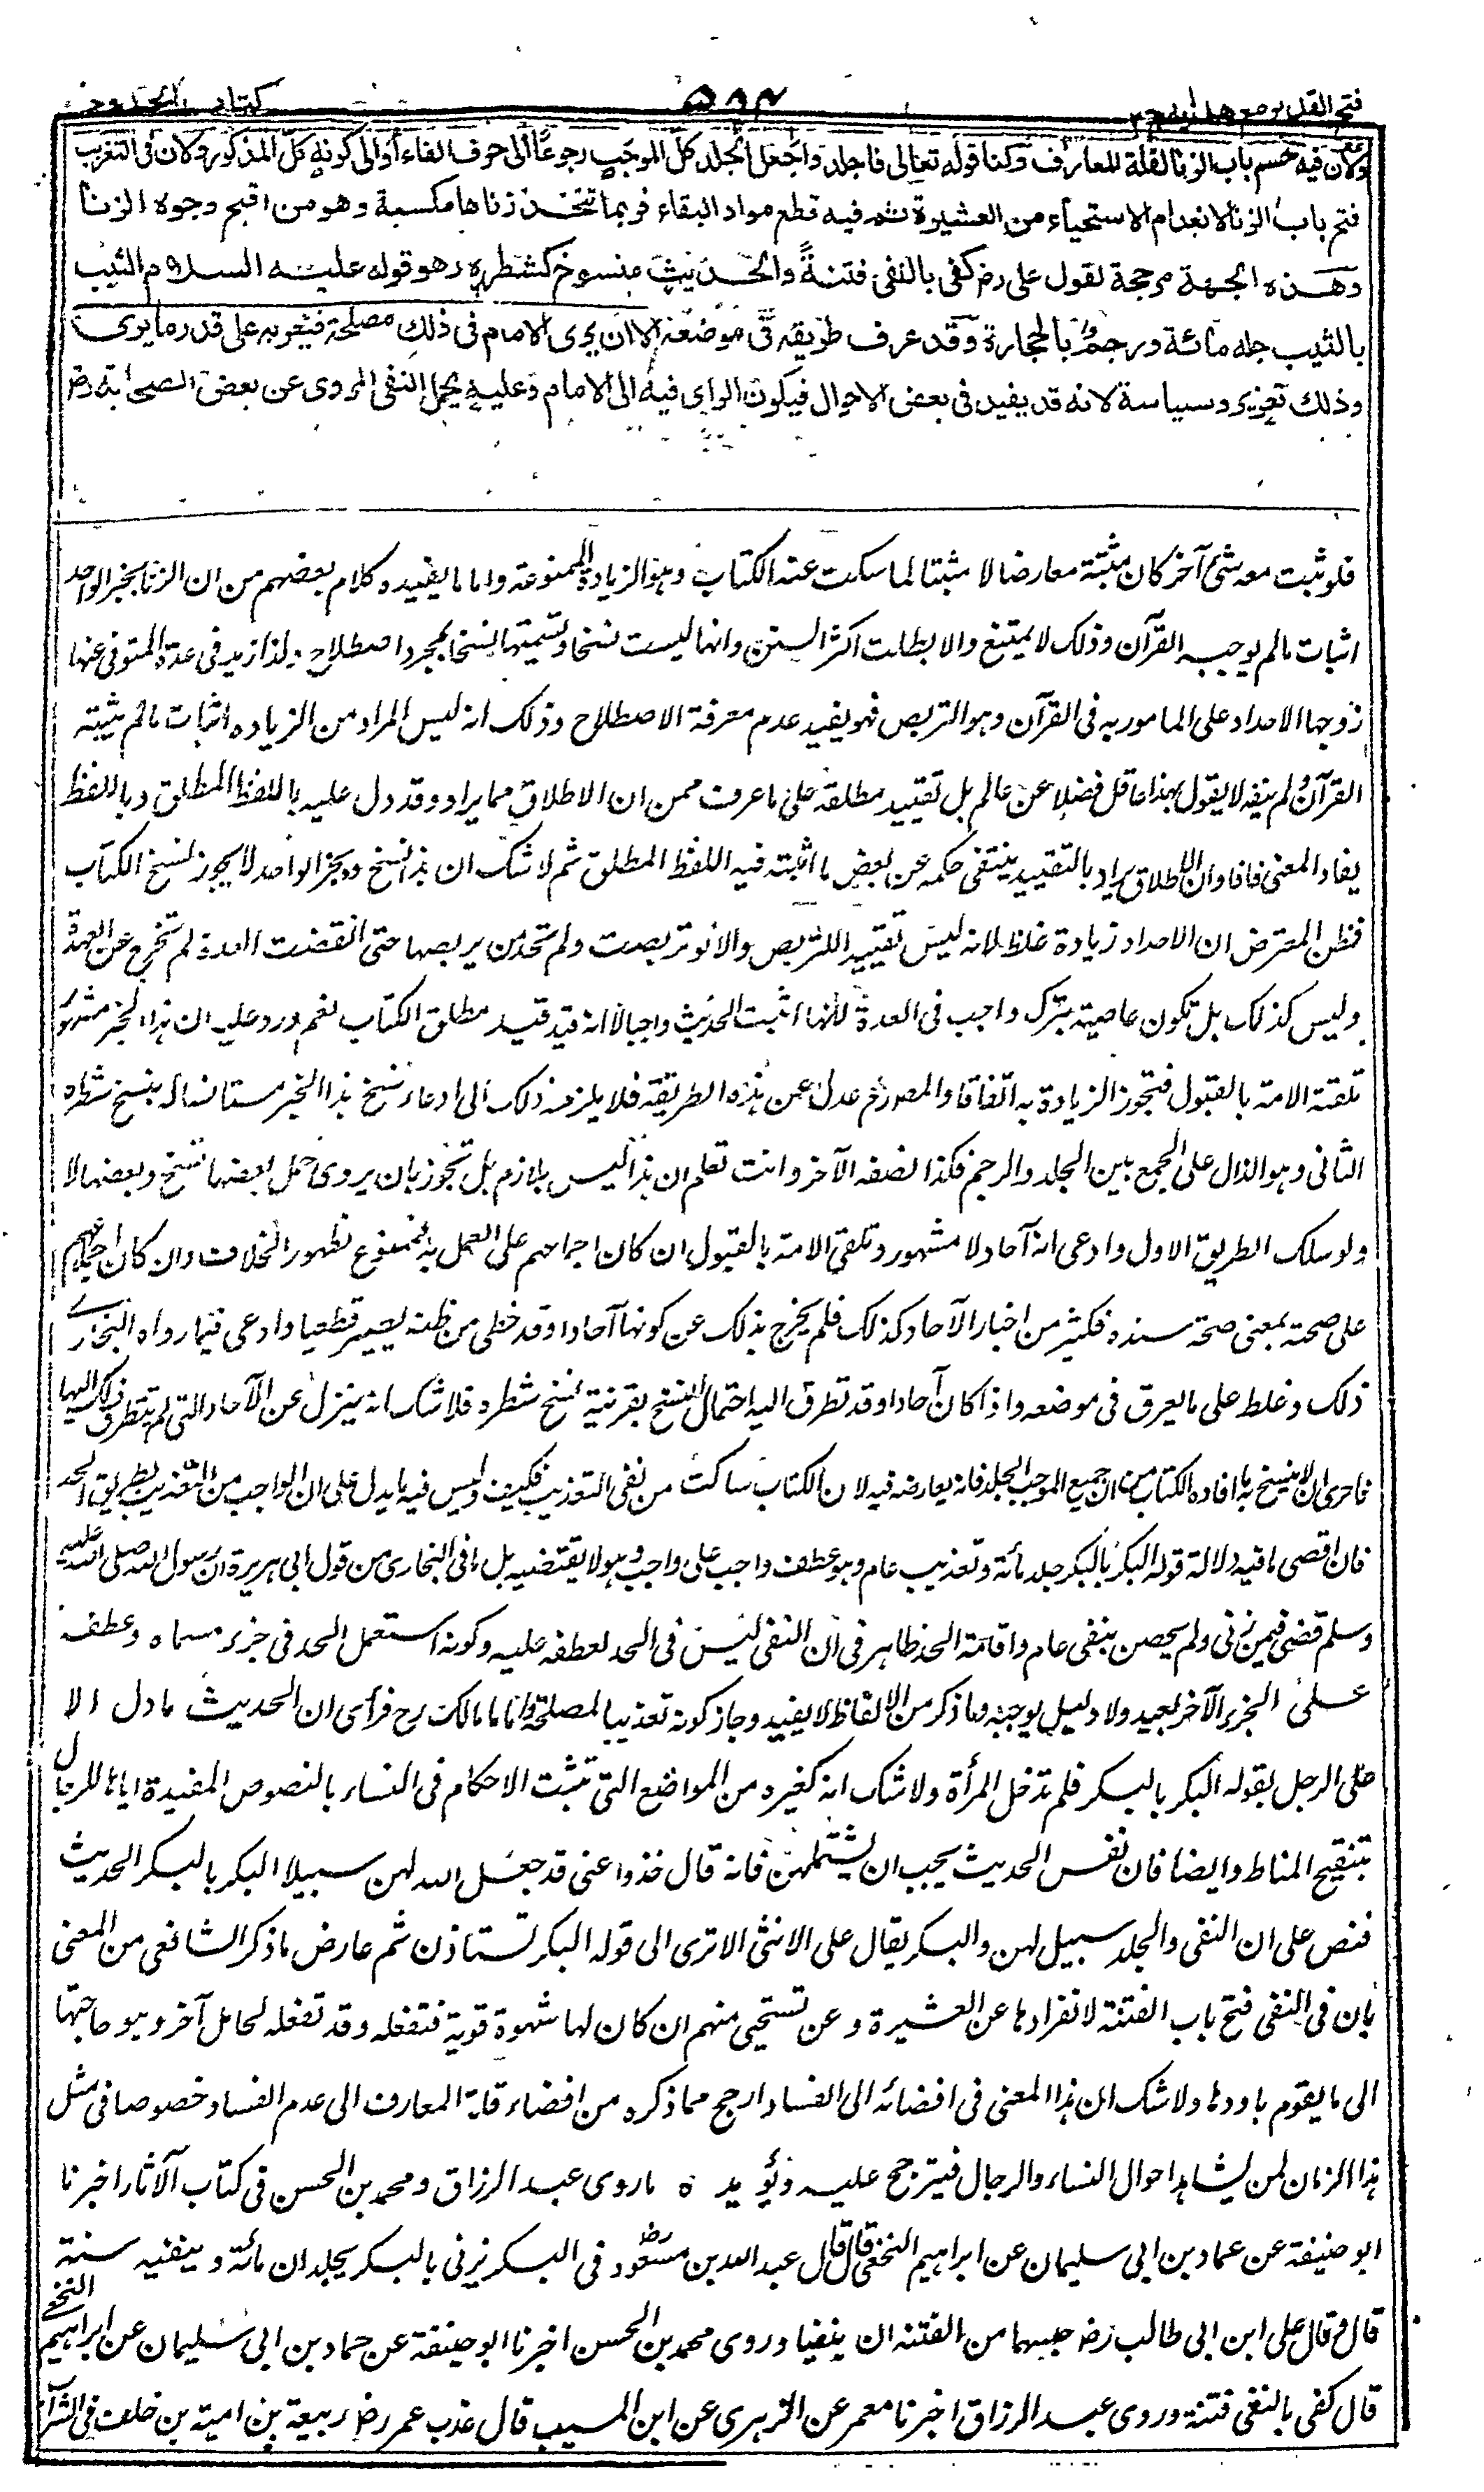 فتح القدير مع هدايه ج٢
٥٩٤
كتاب الحدود
ولأن فيه حسم باب الزنا لقلة المعارف ولنا قوله تعالى فاجلدوا جعل الجلد كل الموجب رجوعًا الى حرف الفاء أو الى كونه كل المذكور ولان فى التغريب
فتح باب الزنا لانعدام الاستحياء من العشيرة ثم فيه قطع مواد البقاء فربما تتخذ زناها مكسبة وهو من اقبح وجوه الزنا
وهذه الجهة مرجحة لقول على رض كفى بالنفى فتنةً والحديث منسوخ كشطره وهو قوله عليه السلام الثيب
بالثيب جلد مائة ورجمٌ بالحجارة وقد عرف طريقه فى موضعه الا ان يرى الامام فى ذلك مصلحة فيغربه على قدر ما يرى
وذلك تعزير وسياسة لانه قد يفيد فى بعض الاحوال فيكون الراى فيه الى الامام وعليه يحمل النفى المروى عن بعض الصحابة رض
فلو ثبت معه شئ آخر كان مثبته معارضا لا مثبتا لما سكت عنه الكتاب وهو الزيادة الممنوعة واما ما يفيده كلام بعضهم من ان الزنا بخبر الواحد
اثبات مالم يوجبه القرآن وذلك لا يمتنع والا بطلت اكثر السنن وانها ليست نسخا وتسميتها نسخا لمجرد اصطلاح ولذا زيد فى عدة المتوفى عنها
زوجها الاحداد على المامور به فى القرآن وهو التربص فهو يفيد عدم معرفة الاصطلاح وذلك انه ليس المراد من الزياده اثبات مالم يثبته
القرآن ولم ينفه لا يقول بهذا عاقل فضلا عن عالم بل تقييد مطلقه على ما عرف من ان الاطلاق مما يراد وقد دل عليه باللفظ المطلق وباللفظ
يفاد المعنى فافاد ان الاطلاق يراد بالتقييد ينتفى حكمه عن بعض ما اثبته فيه اللفظ المطلق ثم لا شك ان هذا نسخ وبخبر الواحد لا يجوز نسخ الكتاب
فظن المعترض ان الاحداد زيادة غلط لانه ليس تقييدا للتربص والا لو تربصت ولم تحد من تربصها حتى انقضت العدة لم تخرج عن العهدة
وليس كذلك بل تكون عاصية بترك واجب فى العدة فانما اثبت الحديث واجبا لا انه قيد مطلق الكتاب نعم ورد عليه ان هذا الخبر مشهور
تلقته الامة بالقبول فتجوز الزيادة به اتفاقا والمصنف رح عدل عن هذه الطريقة فلا يلزمه ذلك الى ادعاء نسخ هذا الخبر مستانسا له بنسخ شطره
الثانى وهو الدال على الجمع بين الجلد والرجم فكذا نصفه الآخر وانت تعلم ان هذا ليس بلازم بل تجوز بان يروى جمل بعضها نسخ وبعضها لا
ولو سلك الطريق الاول وادعى انه آحاد لا مشهور وتلقى الامة بالقبول ان كان اجماعهم على العمل به فممنوع لظهور الخلاف وان كان اجماعهم
على صحته بمعنى صحة سنده فكثير من اخبار الآحاد كذلك فلم يخرج بذلك عن كونها آحادا وقد خطئ من ظنه يصير قطعيا وادعى فيما رواه البخارى
ذلك وغلط على ما يعرف فى موضعه واذا كان آحادا وقد تطرق اليه احتمال النسخ بقرينة نسخ شطره فلا شك انه ينزل عن الآحاد التى لم يتطرق ذلك اليها
فاحرى ان لا ينسخ به ما افاده الكتاب من ان جميع الموجب الجلد فانه يعارضه فيه لا ان الكتاب ساكت من نفى التغريب فكيف وليس فيه ما يدل على ان الواجب من التغريب بطريق الحد
فان اقصى ما فيه دلالة قوله البكر بالبكر جلد مائة وتغريب عام وهو عطف واجب على واجب وهو لا يقتضيه بل ما فى البخارى من قول ابى هريرة ان رسول الله صلى الله عليه
وسلم قضى فيمن زنى ولم يحصن بنفى عام واقامة الحد ظاهر فى ان النفى ليس فى الحد لعطفه عليه وكونه استعمل الحد فى جزء مسماه وعطفه
على الجزء الآخر بعيد ولا دليل يوجبه وما ذكر من الالفاظ لا يفيد وجاز كونه تعذيبا لمصلحة واما مالك رح فرأى ان الحديث ما دل الا
على الرجل بقوله البكر بالبكر فلم تدخل المرأة ولا شك انه كغيره من المواضع التى تثبت الاحكام فى النساء بالنصوص المفيدة اياها للرجال
بتنقيح المناط وايضا فان نفس الحديث يجب ان يشتملهن فانه قال خذوا عنى قد جعل الله لهن سبيلا البكر بالبكر الحديث
فنص على ان النفى والجلد سبيل لهن والبكر يقال على الانثى الا ترى الى قوله البكر تستاذن ثم عارض ما ذكر الشافعى من المعنى
بان فى النفى فتح باب الفتنة لانفرادها عن العشيرة وعن تستحيى منهم ان كان لها شهوة قوية فتفعله وقد تفعله لحامل آخر وهو حاجتها
الى ما يقوم باودها ولا شك ان هذا المعنى فى افضائه الى الفساد ارجح مما ذكره من افضاء قلة المعارف الى عدم الفساد خصوصا فى مثل
هذا الزمان لمن يشاهد احوال النساء والرجال فيترجح عليه ويؤيده ما روى عبد الرزاق ومحمد بن الحسن فى كتاب الآثار اخبرنا
ابو حنيفة عن حماد بن ابى سليمان عن ابراهيم النخعى قال قال عبد الله بن مسعود رض فى البكر يزنى بالبكر يجلدان مائة وينفيه سنة
قال وقال على ابن ابى طالب رض حبسهما من الفتنة ان ينفيا وروى محمد بن الحسن اخبرنا ابو حنيفة عن حماد بن ابى سليمان عن ابراهيم النخعى
قال كفى بالنفى فتنة وروى عبد الرزاق اخبرنا معمر عن الزهرى عن ابن المسيب قال غرب عمر رض ربيعة بن امية بن خلف فى الشراب